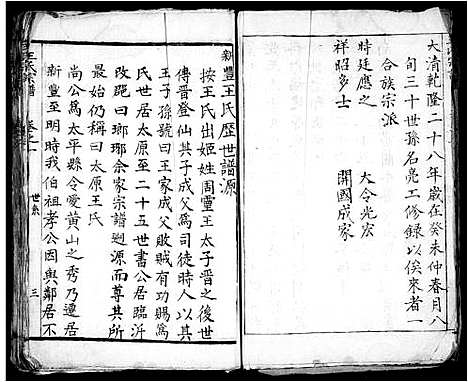 大清乾隆二十八年歲在癸未仲春月八
旬三十世孫名亮工修録以俟來者一
合族宗派
時廷應之　大令光宏
祥昭多士　開國成家
新豐王氏歷世譜源
按王氏出姬姓周靈王太子晋之後世
傳晋登仙其子成父為司徒時人以其
王子孫號曰王家成父敗賊有功賜為
氏世居太原至二十五世書公居臨沂
改跪曰瑯琊余家宗譜廻源而尊其所
最始仍稱曰太原王氏
尚公為太平縣令愛黄山之秀乃遷居
新豐至明時我伯祖孝公因與鄰居不
王氏宗譜　卷之一　世系　三